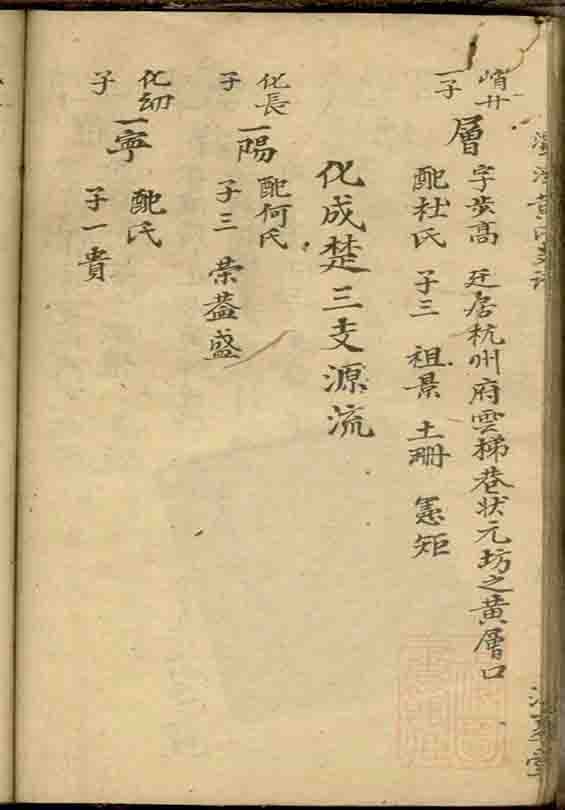 峭廿
一子
層
字步高 廷居杭州府雲梯巷狀元坊之黃層口
配杜氏 子三 祖景 土珊 憲矩
化成楚三支源流
化長
子
一陽
配何氏
子三 榮葢盛
化幼
子
一寧
配氏
子一貴